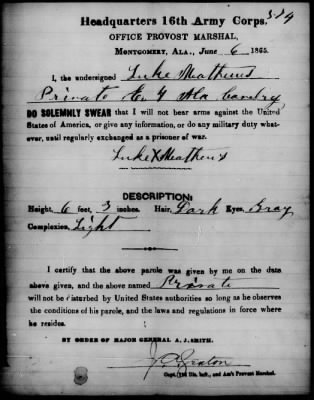 Headquarters 16th Army Corps,
OFFICE PROVOST MARSHAL,
MONTGOMERY, ALA., June 6 1865.
I, the undersigned Luke Meathews
Private Co. G Ala Cavalry
DO SOLEMNLY SWEAR that I will not bear arms against the United
States of America, or give any information, or do any military duty what-
ever, until regularly exchanged as a prisoner of war.
Luke X Meathews
DESCRIPTION:
Height, 6 feet, 3 inches. Hair, Dark Eyes, Gray
Complexion, Light
I certify that the above parole was given by me on the date
above given, and the above named Private
will not be disturbed by United States authorities so long as he observes
the conditions of his parole, and the laws and regulations in force where
he resides.
BY ORDER OF MAJOR GENERAL A. J. SMITH.
Capt. Inft., and Ass't Provost Marshal.